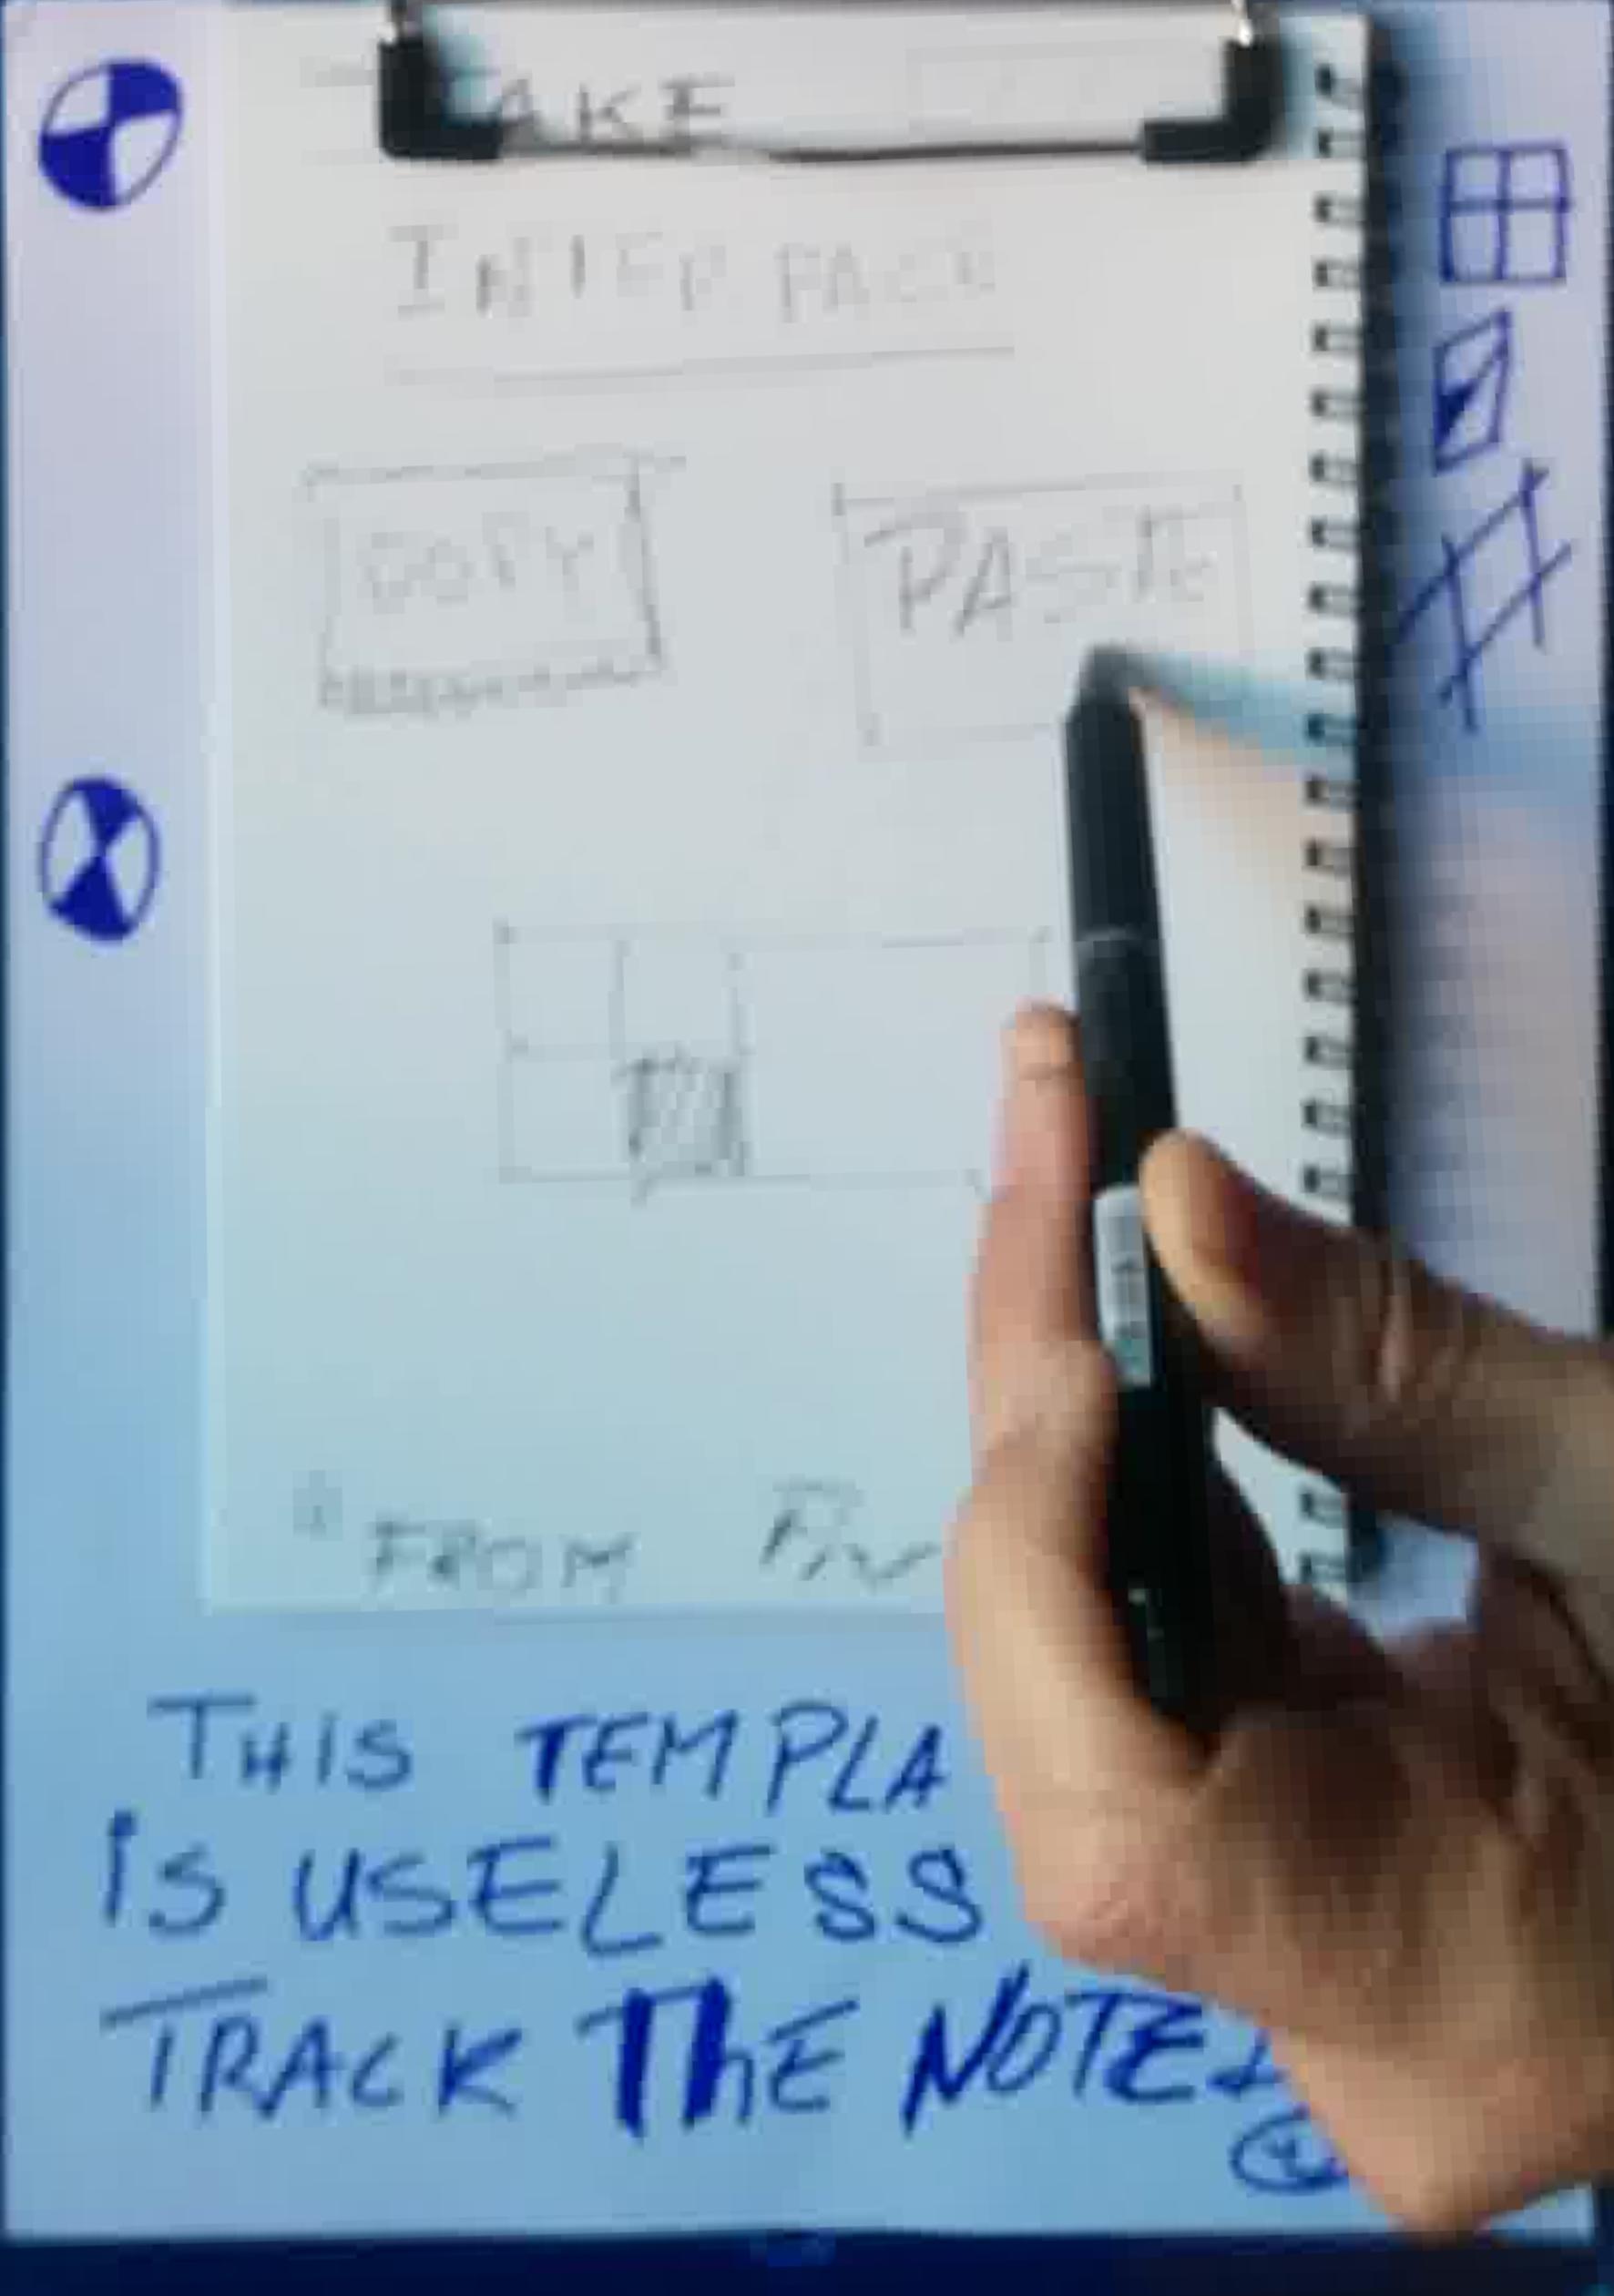 AKE
INTERFACE
COPY PASTE
FROM
THIS TEMPLA
IS USELESS
TRACK THE NOTE